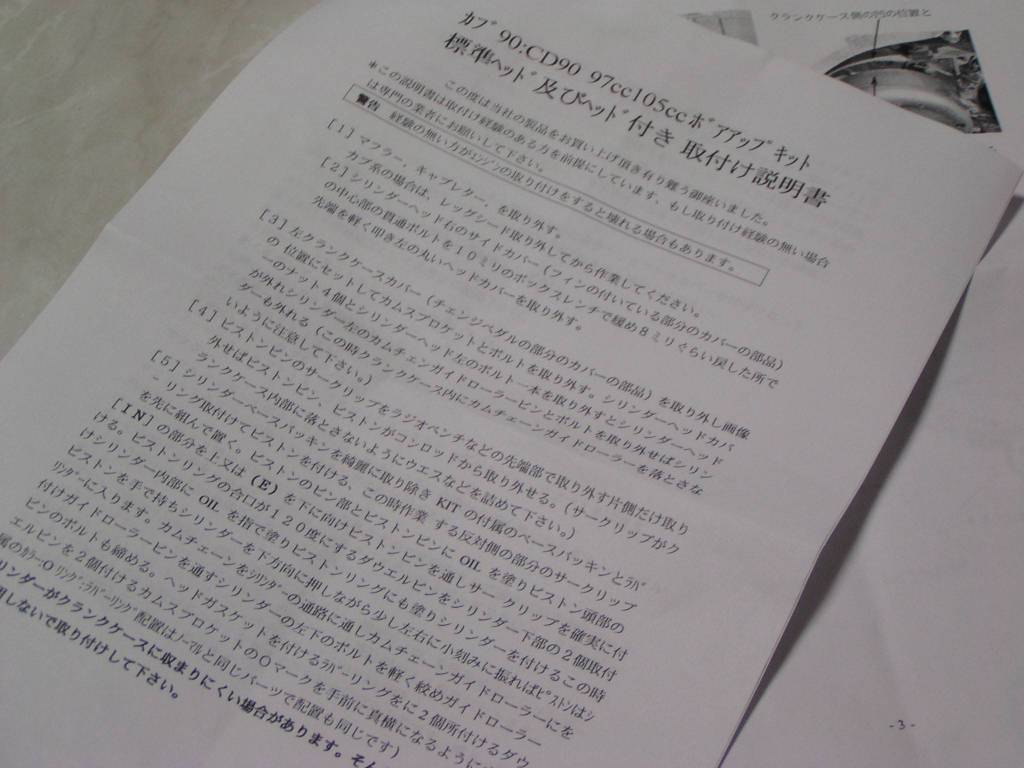 ｶﾌﾞ90:CD90 97cc105ccﾎﾞｱｱｯﾌﾟｷｯﾄ
標準ﾍｯﾄﾞ及びﾍｯﾄﾞ付き 取付け説明書
この度は当社の製品をお買い上げ頂き有り難う御座いました。
*この説明書は取付け経験のある方を前提にしています、もし取り付け経験の無い場合
は専門の業者にお願いして下さい。
警告 経験の無い方がｴﾝｼﾞﾝの取り付けをすると壊れる場合もあります。
[1] マフラー、キャブレター、を取り外す。
カブ系の場合は、レッグシールド取り外してから作業してください。
[2] シリンダーヘッド右のサイドカバー（フィンの付いている部分のカバーの部品）
の中心部の貫通ボルトを１０ミリのボックスレンチで緩め８ミリくらい戻した所で
先端を軽く叩き左の丸いヘッドカバーを取り外す。
[3] 左クランクケースカバー（チェンジペダルの部分のカバーの部品）を取り外し画像
の位置にセットしてカムスプロケットとボルトを取り外す。シリンダーヘッドカバ
ーのナット４個とシリンダーヘッド左のボルト一本を取り外すとシリンダーヘッド
が外れシリンダー左のカムチェンガイドローラーピンとボルトを取り外せばシリン
ダーも外れる（この時クランクケース内にカムチェーンガイドローラーを落とさな
いように注意して下さい。）
[4] ピストンピンのサークリップをラジオペンチなどの先端部で取り外す片側だけ取り
外せばピストンピン、ピストンがコンロッドから取り外せる。（サークリップがク
ランクケース内部に落とさないようにウエスなどを詰めて下さい。）
[5] シリンダーベースパッキンを綺麗に取り除き KIT の付属のベースパッキンとﾗﾊﾞ
-リング取付けてピストンを付ける、この時作業する反対側の部分のサークリップ
を先に組んで置く。ピストンのピン部とピストンピンに OIL を塗りピストン頭部の
[IN]の部分を上又は(E)を下に向けピストンピンを通しサークリップを確実に付
ける。ピストンリングの合口が１２０度にするダウエルピンをシリンダー下部の２個取付
けシリンダー内部に OIL を指で塗りピストンリングにも塗りシリンダーを付けるこの時
ピストンを手で持ちシリンダーを下方向に押しながら少し左右に小刻みに振ればﾋﾟｽﾄﾝはｼ
ﾘﾝﾀﾞｰに入ります。カムチェーンをｼﾘﾝﾀﾞｰの通路に通しカムチェーンガイドローラーにを
付けガイドローラーピンを通すシリンダーの左下のボルトを軽く絞めガイドローラー
ピンのボルトも締める。ヘッドガスケットを付けるﾗﾊﾞｰリングをに２個所付けるダウ
エルピンを２個付けるカムスプロケットの〇マークを手前に真横になるように
属のｶﾗｰ:Oﾘﾝｸﾞ･ﾗﾊﾞｰﾘﾝｸﾞ配置はﾉｰﾏﾙと同じパーツで配置も同じです）
リンダーがクランクケースに収まりにくい場合があります。そん
用しないで取り付けして下さい。
クランクケース側の凹の位置と
-3-